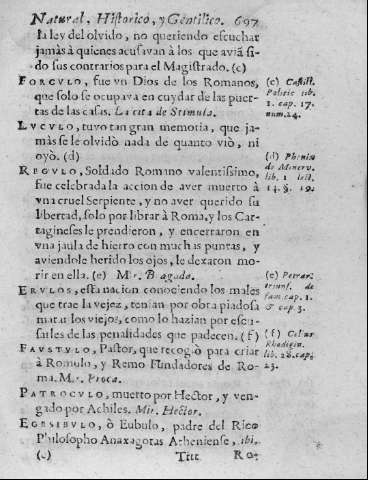 Natural, Historico, y Gentilico. 697
la ley del olvido, no queriendo escuchar
jamàs à quienes acusavan à los que aviã si-
do sus contrarios para el Magistrado. (c)
FORCULO, fue vn Dios de los Romanos,
que solo se ocupava en cuydar de las puer-
tas de las casas. La cita de Stimula.
LVCVLO, tuvo tan gran memoria, que ja-
màs se le olvidò nada de quanto viò, ni
oyò. (d)
REGVLO, Soldado Romano valentissimo,
fue celebrada la accion de aver muerto à
vna cruel Serpiente, y no aver querido su
libertad, solo por librar à Roma, y los Car-
tagineses le prendieron, y encerraron en
vna jaula de hierro con muchas puntas, y
aviendole herido los ojos, le dexaron mo-
rir en ella. (e) Mir. Bagada.
ERVLOS, esta nacion conociendo los males
que trae la vejez, tenian por obra piadosa
matar los viejos, como lo hazian por escu-
sarles de las penalidades que padecen. (f)
FAVSTVLO, Pastor, que recogiò para criar
à Romulo, y Remo Fundadores de Ro-
ma. Mir. Proca.
PATROCVLO, muerto por Hector, y ven-
gado por Achiles. Mir. Hector.
EGESIBVLO, ò Eubulo, padre del Rico
Philosopho Anaxagoras Atheniense, ibi.
(c) Tttt Ro-
(c) Castill.
Patric lib.
1. cap. 17.
num. 24.
(d) Phenix
de Minerv.
lib. 1 lect.
14. §. 19.
(e) Petrar.
triunf. de
fam. cap. 1.
& cap. 3.
(f) Celius
Rhodigin.
lib. 28. cap.
23.